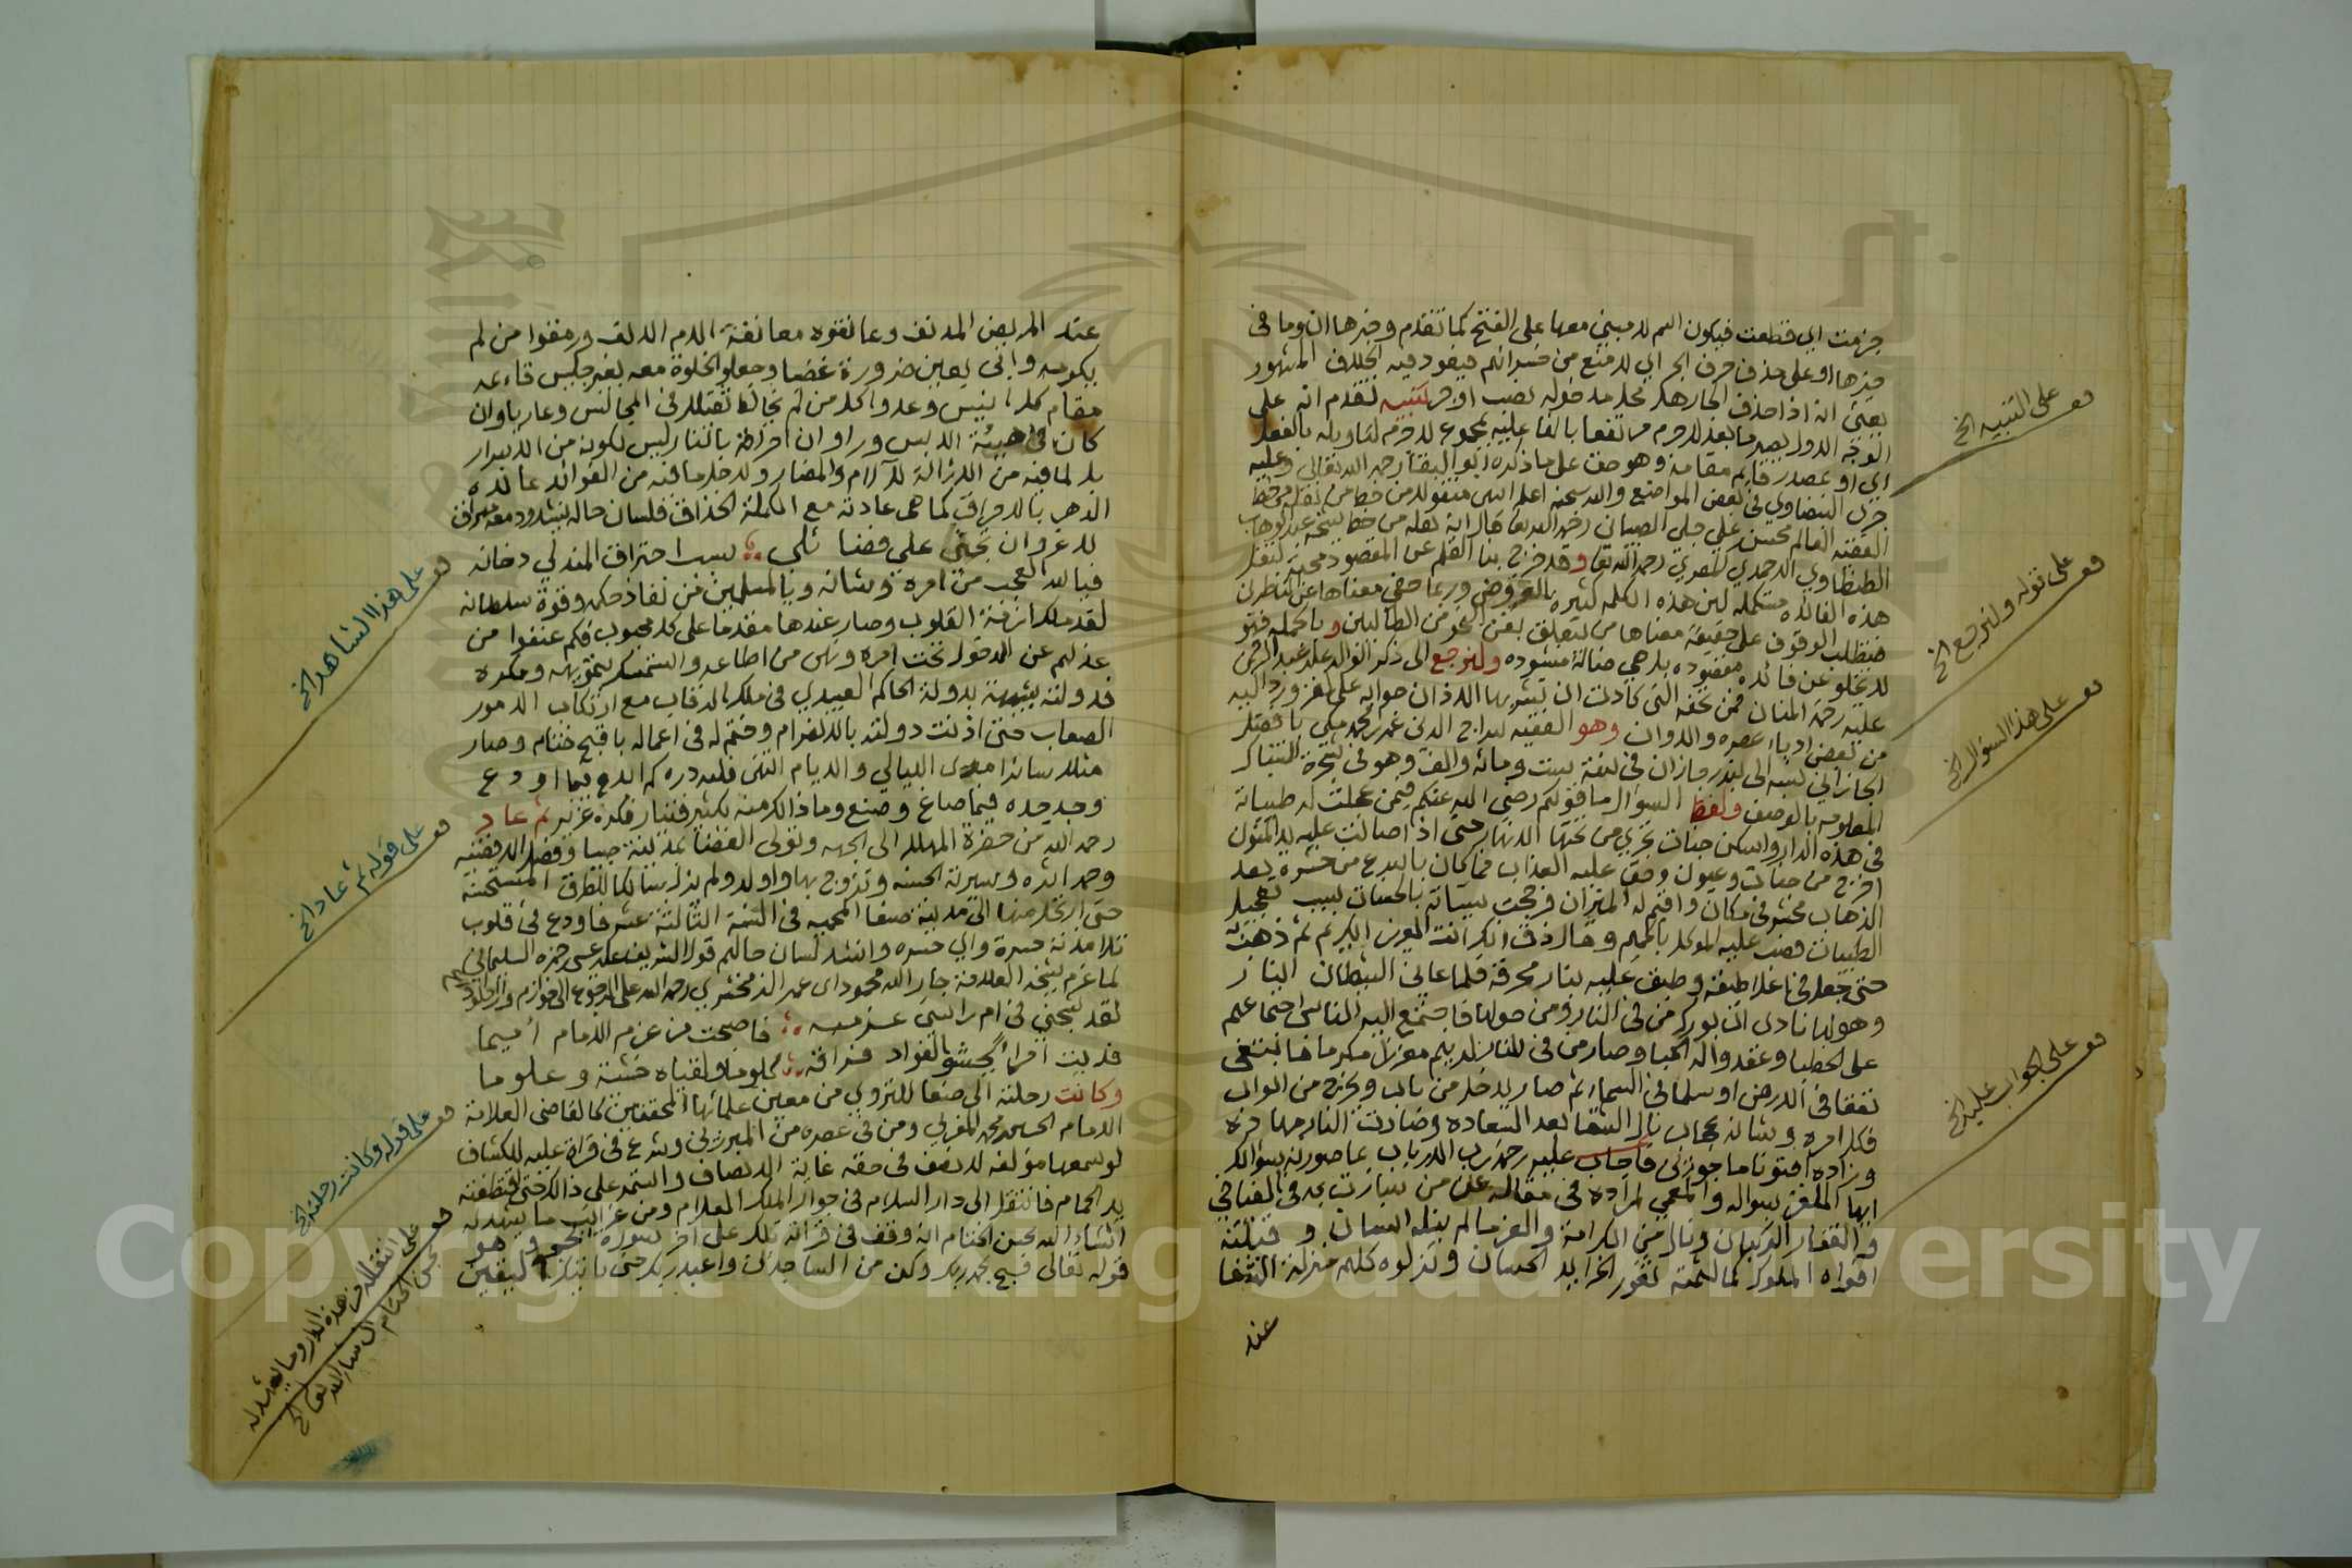 جزمت اي قطعت فيكون اسم لا مبني معها على الفتح كما تقدم وخبرها ان وما في
خبرها او على حذف حرف الجر اي لا منع من خسرانهم فيعود فيه الخلاف المشهور
يعني ان اذا حذف الجار هل محل مدخوله نصب او جر تنبيه تقدم انه على
الوجه الاول يصير ما بعد لا جرم مرتفعا بالفاعليه لمجموع لا جرم لتاويله بالفعل
اي او بمصدر قايم مقامه وهو حق على ما ذكره ابو البقا رحمه الله تعالى وعليه
جرى البيضاوي في بعض المواضع والله سبحنه اعلم انتهى منقولا من خط من نقله من خط
الفقيه العالم محسن علي الصبان رحمه الله تعا قال انه نقله من خط شيخه عبدالوهاب
الطنطاوي الاحمدي المصري رحمه الله تعا وقد خرج بنا القلم عن المقصود محبة لنقل
هذه الفائده مستكمله لان هذه الكلمه كثيره وربما خفي معناها عن الناظر
فتطلب الوقوف على حقيقة معناها من يتعلق بفن النحو من الطالبين وبالجمله فهو
لا تخلو عن فائده مفقوده بل هي ضالة منشوده ولنرجع الى ذكر الوالد عبدالرحمن
عليه رحمة المنان فمن تحفه التي كادت ان تشربها الاذان جوابه على لغز ورد اليه
من بعض ادباء عصره والاوان وهو الفقيه سراج الدين عمر
الجازاني نسبه الى بندر جازان في سنة ست ومائه والف وهو في شجرة التنباك
المعلومه بالوصف ولفظ السؤال ما قولكم رضي الله عنكم فيمن عجلت له طيباته
في هذه الدار واسكن جنات تجري من تحتها الانهار حتى اذا
اخرج من جنات وعيون وحق عليه العذاب فما كان باسرع من حشره بعد
الذهاب محشر في مكان واقيم له الميزان فرجحت سيئاته بالحسنات بسبب تعجيل
الطيبات فصب عليه الموكل بالحميم وقال ذق انك انت العزيز الكريم ثم ذهبت
حتى جعل في اغلا طبقه وطبق عليه بنار محرقة فلما عاين الشيطان النار
وهولها نادى ان بورك من في النار ومن حولها فاجتمع اليه الناس اجتماعهم
على الحطبا وعقدوا له الحبا وصار من في النار لديهم معززا مكرما فابتغى
نفقا في الارض او سلما في السماء ثم صار يدخل من باب ويخرج من ابواب
فكل امره وشانه عجاب نال الشقا بعد السعاده وصارت النار
وزاده افتونا ماجورين فاجاب عليه رحمة رب الارباب بما صورته سؤالك
ايها الملغز بسؤاله والمعمي لمراده في مقاله عن من سارت به في الفيافي
والقفار الركبان ونال من الكرامة والعز ما لم ينله انسان وقبلته
افواه الملوك كما لثمته ثغور الخرايد الحسان ونزلوه كلهم منزلة الشفا
عند
قف على التنبيه الخ
قف على قوله ولنرجع الخ
قف على هذا السؤال الخ
قف على الجواب عليه الخ
عند المريض المدنف وعانقوه معانقة اللام الالف ورمقوا من لم
يكرمه واتى بعين ضرورة غضبا وجعلوا الخلوة معه بغير جليس قاءمه
مقام كل انيس وعدوا كل من لم يخالط ثقيلا في المجالس وعار باوان
كان في هيئة اللابس وراوا ان احراقه بالنار ليس لكونه من الاشرار
بل لما فيه من الازالة للآلام والمضار ولاجل ما فيه من الفوائد عانده
الدهر بالاحراق كما هي عادته مع الكملة الحذاق فلسان حاله ينشد ودمعه مهراق
لا غرو ان يجني علي فضائلي ؞ سبب احتراق المندلي دخانه
فيالله العجب من امره وشانه ويا للمسلمين من نفاذ حكمه وقوة سلطانه
لقد ملك ازمة القلوب وصار عندها مقدما على كل محبوب فكم عنفوا من
عذلهم عن الدخول تحت امره ونهى من اطاعه واستمسك بتمويهه ومكره
فدولته شبيهة بدولة الحاكم العبيدي في ملك الرقاب مع ارتكاب الامور
الصعاب حتى اذنت دولته بالانصرام وختم له في اعماله باقبح ختام وصار
مثلا سائرا مدى الليالي والايام انتهى فلله دره كم ابدع فيما اودع
وجد جده فيما صاغ وصنع وما ذالك منه بكثير فتيار فكره غزير ثم عاد
رحمه الله من حضرة المهلا الى الجهه وتولى القضا بمدينة صبيا وفصل الاقضيه
وحمد اثره وسيرته الحسنه وتزوج بها واولد ولم يزل سالكا للطرق المستحسنه
حتى ارتحل منها الى مدينة صنعا المحميه في السنة الثالثة عشر فاودع في قلوب
تلامذته حسرة واي حسره وانشد لسان حالهم قول الشريف علي عيسى حمزه السليماني
لما عزم شيخه العلامة جار الله محمود ابن عمر الزمخشري رحمه الله على الرجوع الى خوارزم
لقد شجني في ام راسي عزمه ؞ فاصبحت من عزم الامام اميما
وكانت رحلته الى صنعا للتروي من معين علمائها المحققين كالقاضي العلامة
الامام الحسين محمد المغربي ومن في عصره من المبرزين وشرع في قراة عليه للكشاف
لو سمعها مؤلفه لانصف في حقه غاية الانصاف واستمر على ذالك حتى اقتطفته
يد الحمام فانتقل الى دار السلام في جوار الملك العلام ومن غرائب ما يشهد له
انشاء الله بحسن الختام انه وقف في قرائته تلك على اخر سورة الحجر وهو
قوله تعالى فسبح بحمد ربك وكن من الساجدين واعبد ربك حتى ياتيك اليقين
قف على هذا الشاهد الخ
قف على قوله ثم عاد الخ
قف على قوله وكانت رحلته الخ
قف على انتقاله من هذه الدار وما يشهد له
بحسن الختام ان شاء الله تعالى الخ
Copyright © King Saud University